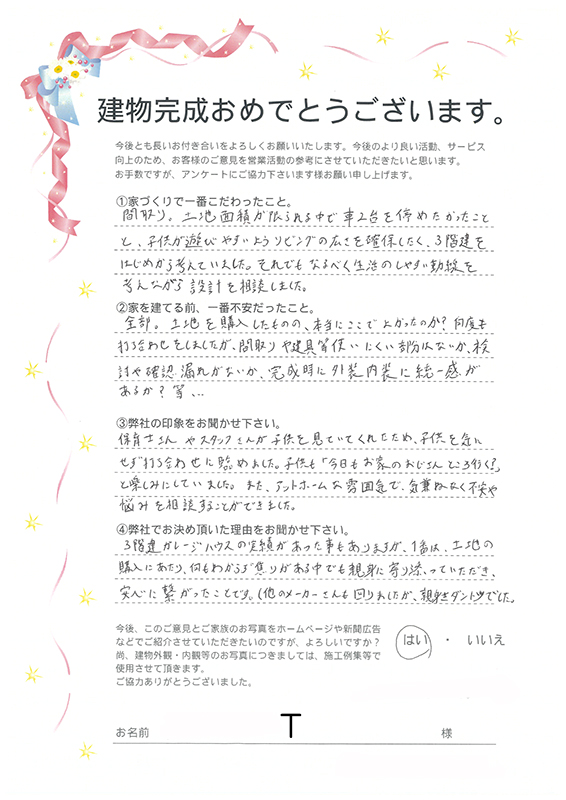 建物完成おめでとうございます。
今後とも長いお付き合いをよろしくお願いいたします。今後のより良い活動、サービス
向上のため、お客様のご意見を営業活動の参考にさせていただきたいと思います。
お手数ですが、アンケートにご協力下さいます様お願い申し上げます。
①家づくりで一番こだわったこと。
間取り。土地面積が限られる中で車2台を停めたかったこと
と、子供が遊びやすいようリビングの広さを確保したく、3階建を
はじめから考えていました。それでもなるべく生活のしやすい動線を
考えながら設計を相談しました。
②家を建てる前、一番不安だったこと。
全部。土地を購入したものの、本当にここでよかったのか?何度も
打ち合わせをしましたが、間取りや建具等使いにくい部分はないか、検
討や確認漏れがないか、完成時に外装内装に統一感が
あるか?等、、、
③弊社の印象をお聞かせ下さい。
保育士さんやスタッフさんが子供を見ていてくれたため、子供を気に
せず打ち合わせに臨めました。子供も「今日もお家のおじさんところ行く?」
と楽しみにしていました。また、アットホームな雰囲気で、気兼ねなく不安や
悩みを相談することができました。
④弊社でお決め頂いた理由をお聞かせ下さい。
3階建ガレージハウスの実績があった事もありますが、1番は、土地の
購入にあたり、何もわからず焦りがある中でも親身に寄り添っていただき、
安心に繋がったことです。(他のメーカーさんも回りましたが、親身さダントツでした。
今後、このご意見とご家族のお写真をホームページや新聞広告
などでご紹介させていただきたいのですが、よろしいですか?
はい ・ いいえ
尚、建物外観・内観等のお写真につきましては、施工例集等で
使用させて頂きます。
ご協力ありがとうございました。
お名前 T 様